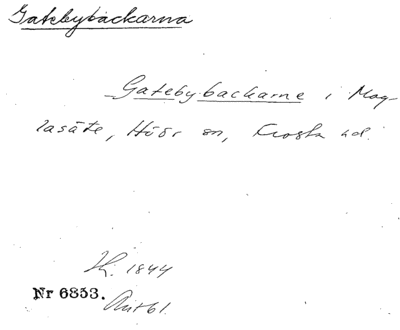 Gatebybackarna
Gatebybackarne i Mag-
lasäte, Höör sn, Frosta hd.
1844
Nr 6853.